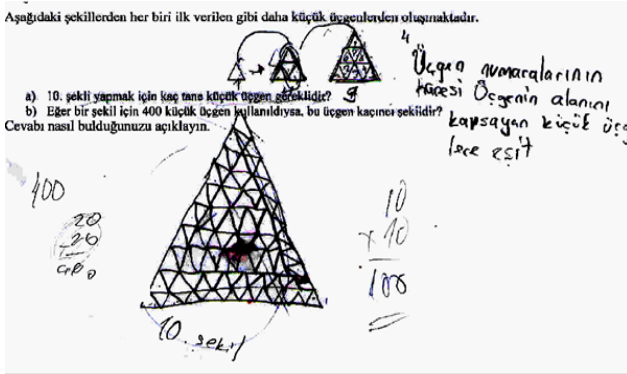 Aşağıdaki şekillerden her biri ilk verilen gibi daha küçük üçgenlerden oluşmaktadır.
a) 10. şekli yapmak için kaç tane küçük üçgen gereklidir?
b) Eğer bir şekil için 400 küçük üçgen kullanıldıysa, bu üçgen kaçıncı şekildir?
Cevabı nasıl bulduğunuzu açıklayın.
4
9
Üçgen numaralarının
karesi Üçgenin alanını
kapsayan küçük üçg
lere eşit
400
20
20
400
10
x 10
100
10. şekil